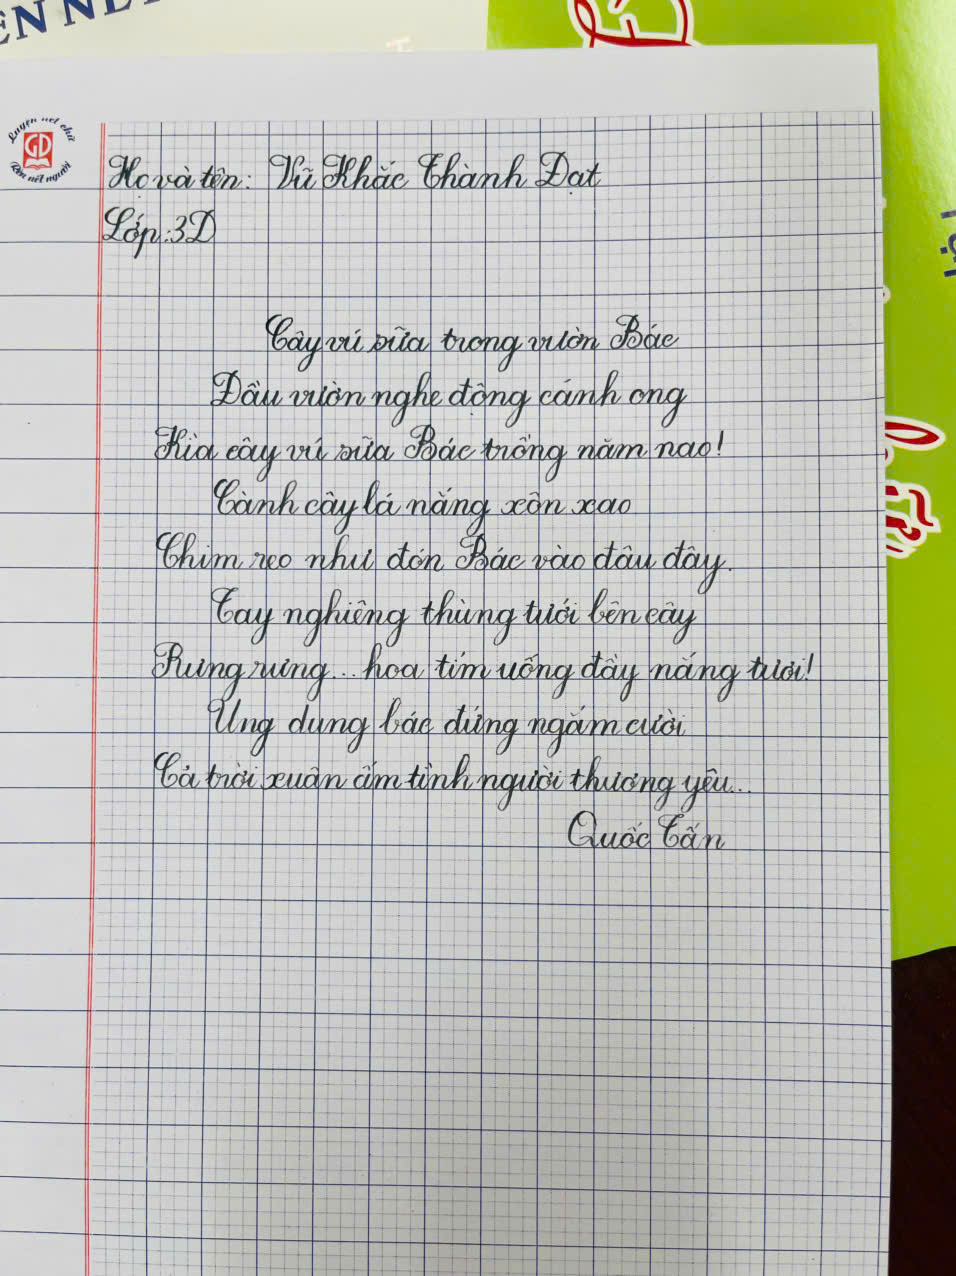 ÈN NÉ
Luyện nét chữ
GD
Rèn nết người
Họ và tên: Vũ Khắc Thành Đạt
Lớp: 3D
Cây vú sữa trong vườn Bác
Đầu vườn nghe động cánh ong
Kìa cây vú sữa Bác trồng năm nao!
Cành cây lá nắng xôn xao
Chim reo như đón Bác vào đâu đây.
Tay nghiêng thùng tưới bên cây
Rưng rưng... hoa tím uống đầy nắng tươi!
Ung dung bác đứng ngắm cười
Cả trời xuân ấm tình người thương yêu...
Quốc Tấn